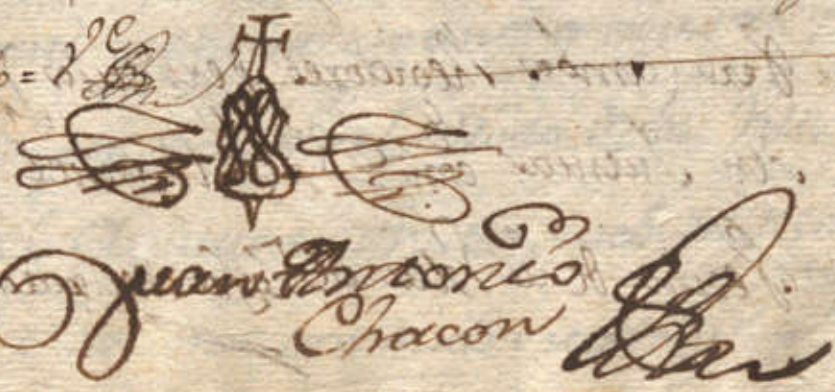 = Ve
Juan Antonio
Chacon